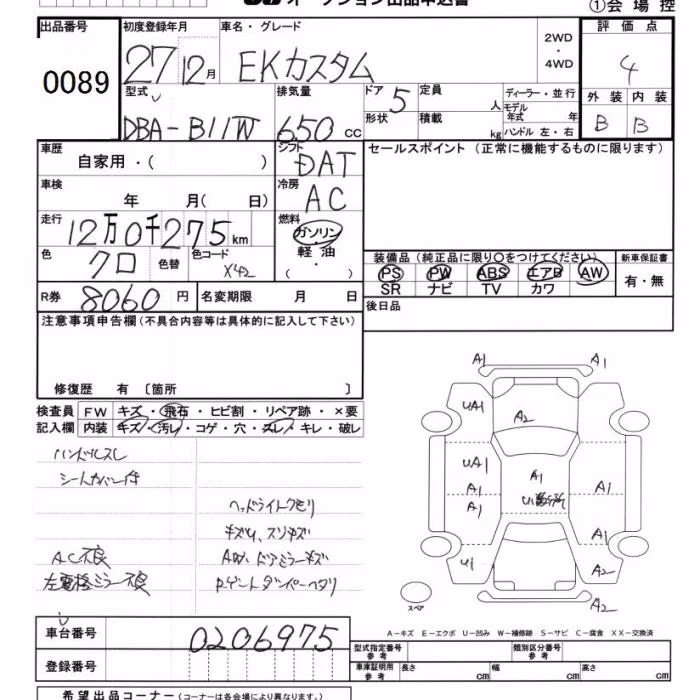 オークション出品申込書
①会場控
出品番号 初度登録年月 車名・グレード 2WD ・ 4WD 評価点
0089 27年12月 EKカスタム 4
型式 排気量 ドア 5 定員 人 ディーラー・並行 外装 内装
DBA-B11W 650cc 形状 積載 kg モデル年式 年 ハンドル 左・右 B B
車歴 自家用・( ) シフト DAT セールスポイント (正常に機能するものに限ります)
車検 年 月( 日) 冷房 AC
走行 12万0千275km 燃料 ガソリン・軽油・( )
色 クロ 色替 色コード X42
装備品 (純正品に限り○をつけてください) 新車保証書
PS PW ABS エアB AW 有・無
SR ナビ TV カワ
R券 8060円 名変期限 月 日 後日品
注意事項申告欄 (不具合内容等は具体的に記入して下さい)
修復歴 有 〔箇所 〕
検査員 FW キズ・飛石・ヒビ割・リペア跡・×要
記入欄 内装 キズ・汚レ・コゲ・穴・スレ・キレ・破レ
ハンドルスレ
シートカバー付
ヘッドライトクモリ
キズU、スリキズ
AC不良 AW、ドアミラーキズ
左電格ミラー不良 Rゲートダンパーヘタリ
A1 A1
UA1 A2
UA1 A1
A1 A1 A1
U1
A1
U1 A2
スペア A2
A-キズ E-エクボ U-凹み W-補修跡 S-サビ C-腐食 XX-交換済
車台番号 0206975
型式指定番号 参考 類別区分番号 参考
登録番号 車庫証明用 参考 長さ cm 幅 cm 高さ cm
希望出品コーナー (コーナーは各会場により異なります。)